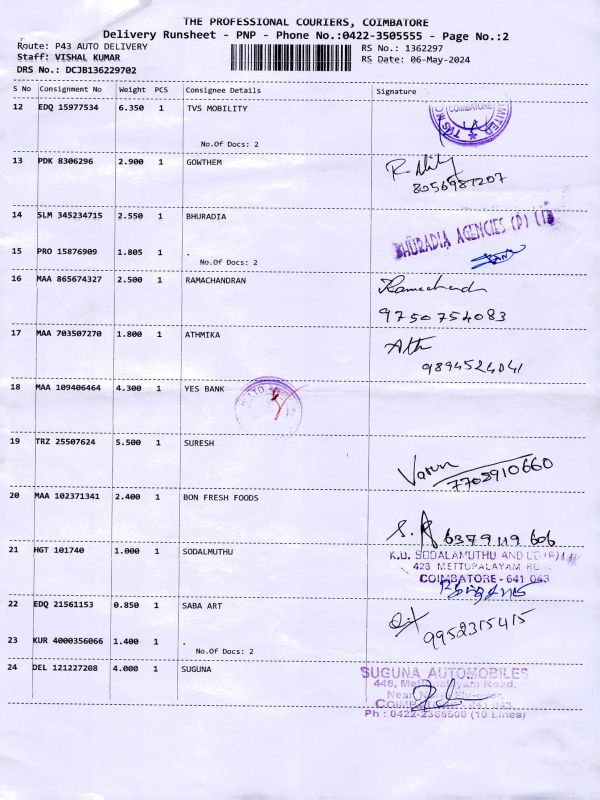 THE PROFESSIONAL COURIERS, COIMBATORE
Delivery Runsheet - PNP - Phone No.:0422-3505555 - Page No.:2
Route: P43 AUTO DELIVERY
RS No.: 1362297
Staff: VISHAL KUMAR
RS Date: 06-May-2024
DRS No.: DCJB136229702
S No Consignment No Weight PCS Consignee Details Signature
12 EDQ 15977534 6.350 1 TVS MOBILITY
COIMBATORE
No.Of Docs: 2
13 PDK 8306296 2.900 1 GOWTHEM
8056987207
14 SLM 345234715 2.550 1 BHURADIA
BHURADIA AGENCIES (P)
15 PRO 15876909 1.805 1 .
No.Of Docs: 2
16 MAA 865674327 2.500 1 RAMACHANDRAN
9750754083
17 MAA 703507270 1.800 1 ATHMIKA
Ath
9894524041
18 MAA 109406464 4.300 1 YES BANK
19 TRZ 25507624 5.500 1 SURESH
Varun
7708910660
20 MAA 102371341 2.400 1 BON FRESH FOODS
6379119606
21 HGT 101740 1.000 1 SODALMUTHU
K.U. SODALAMUTHU AND CO (P)
423 METTUPALAYAM
COIMBATORE - 641 043
22 EDQ 21561153 0.850 1 SABA ART
9952315415
23 KUR 4000356066 1.400 1 .
No.Of Docs: 2
24 DEL 121227208 4.000 1 SUGUNA
SUGUNA AUTOMOBILES
446, Mettupalayam Road,
Near
Ph : 0422-2366500 (10 Lines)